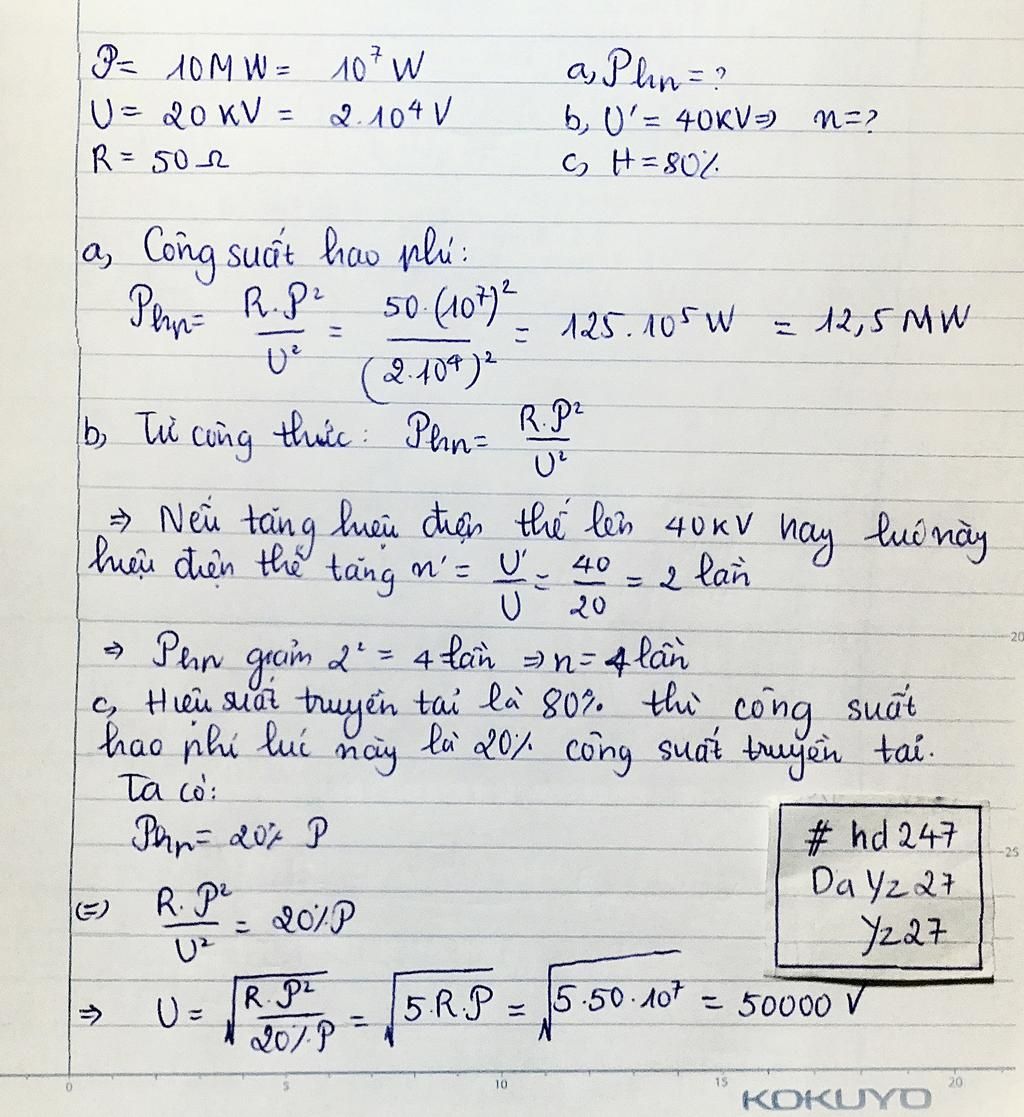 P= 10MW= 10⁷W
U= 20KV= 2.10⁴V
R= 50Ω
a, Phn=?
b, U'= 40KV⇒ n=?
c, H=80%
a, Công suất hao phí:
Phn= R.P²/U² = 50.(10⁷)²/(2.10⁴)² = 125.10⁵W = 12,5MW
b, Từ công thức: Phn= R.P²/U²
⇒ Nếu tăng hiệu điện thế lên 40KV hay lúc này
hiệu điện thế tăng n'= U'/U = 40/20 = 2 lần
⇒ Phn giảm 2² = 4 lần ⇒ n= 4 lần
c, Hiệu suất truyền tải là 80% thì công suất
hao phí lúc này là 20% công suất truyền tải.
Ta có:
Phn= 20% P
(=) R.P²/U² = 20%P
⇒ U= √(R.P²/20%P) = √(5.R.P) = √(5.50.10⁷) = 50000 V
# hd247
DaYz27
Yz27
20
25
0 5 10 15 20
KOKUYO